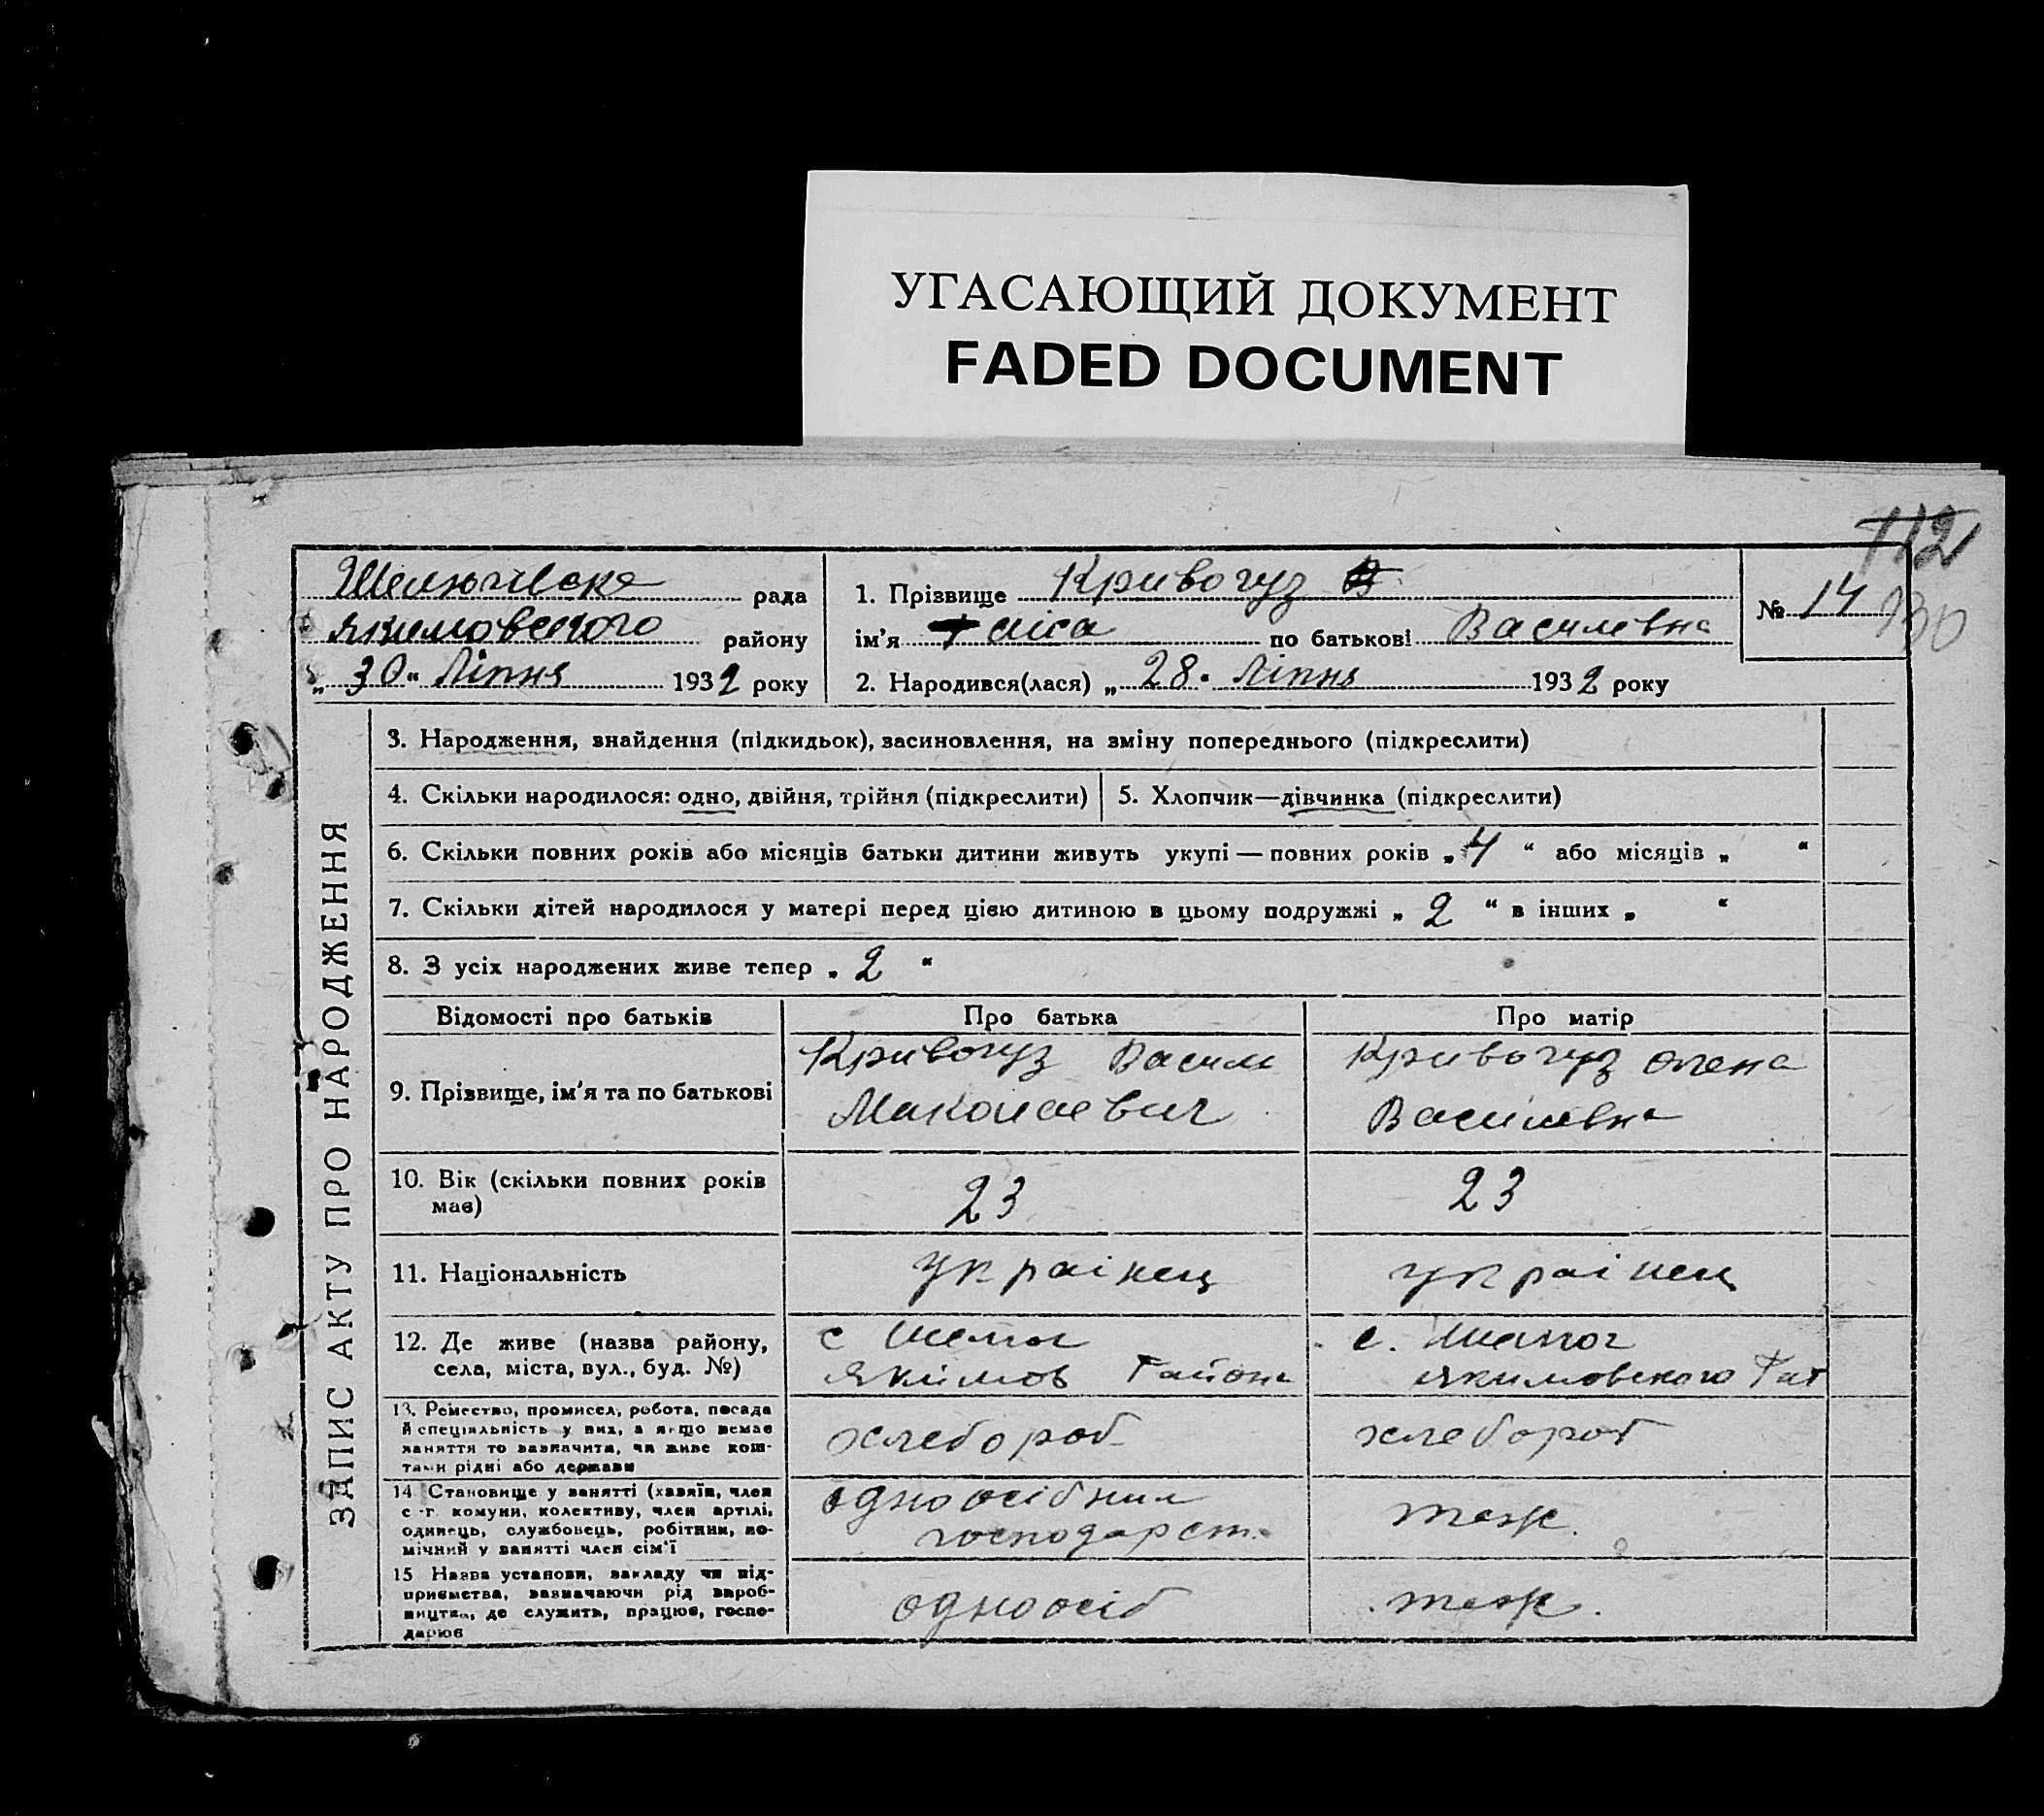 УГАСАЮЩИЙ ДОКУМЕНТ
FADED DOCUMENT
112
Шелюгівска рада
Якимовского району
„30“ Ліпня 1932 року
1. Прізвище Кривогуз
ім’я Таіса по батькові Василевна
2. Народився(лася) „28“ Ліпня 1932 року
№ 14
130
ЗАПИС АКТУ ПРО НАРОДЖЕННЯ
3. Народження, знайдення (підкидьок), засиновлення, на зміну попереднього (підкреслити)
4. Скільки народилося: одно, двійня, трійня (підкреслити)
5. Хлопчик—дівчинка (підкреслити)
6. Скільки повних років або місяців батьки дитини живуть укупі — повних років „4“ або місяців „ “
7. Скільки дітей народилося у матері перед цією дитиною в цьому подружжі „2“ в інших „ “
8. З усіх народжених живе тепер „2“
Відомості про батьків
Про батька
Про матір
9. Прізвище, ім’я та по батькові
Кривогуз Васил
Миколаевич
Кривогуз Олена
Василевна
10. Вік (скільки повних років
має)
23
23
11. Національність
украінец
украінец
12. Де живе (назва району,
села, міста, вул., буд. №)
с Шелюг
Якимов Района
с. Шелюг
Якимовского
13. Ремество, промисел, робота, посада
й спеціяльність у них, а якщо немає
заняття то зазначити, чи живе кош-
тами рідні або держави
хлебороб
хлебороб
14 Становище у занятті (хазяїн, член
с.-г. комуни, колективу, член артілі,
одинець, службовець, робітник, по-
мічний у занятті член сім’ї
одноосібник
господарст.
теж.
15 Назва установи, закладу чи під-
приємства, зазначаючи рід вироб-
ництва, де служить, працює, госпо-
дарює
одноосіб
теж.